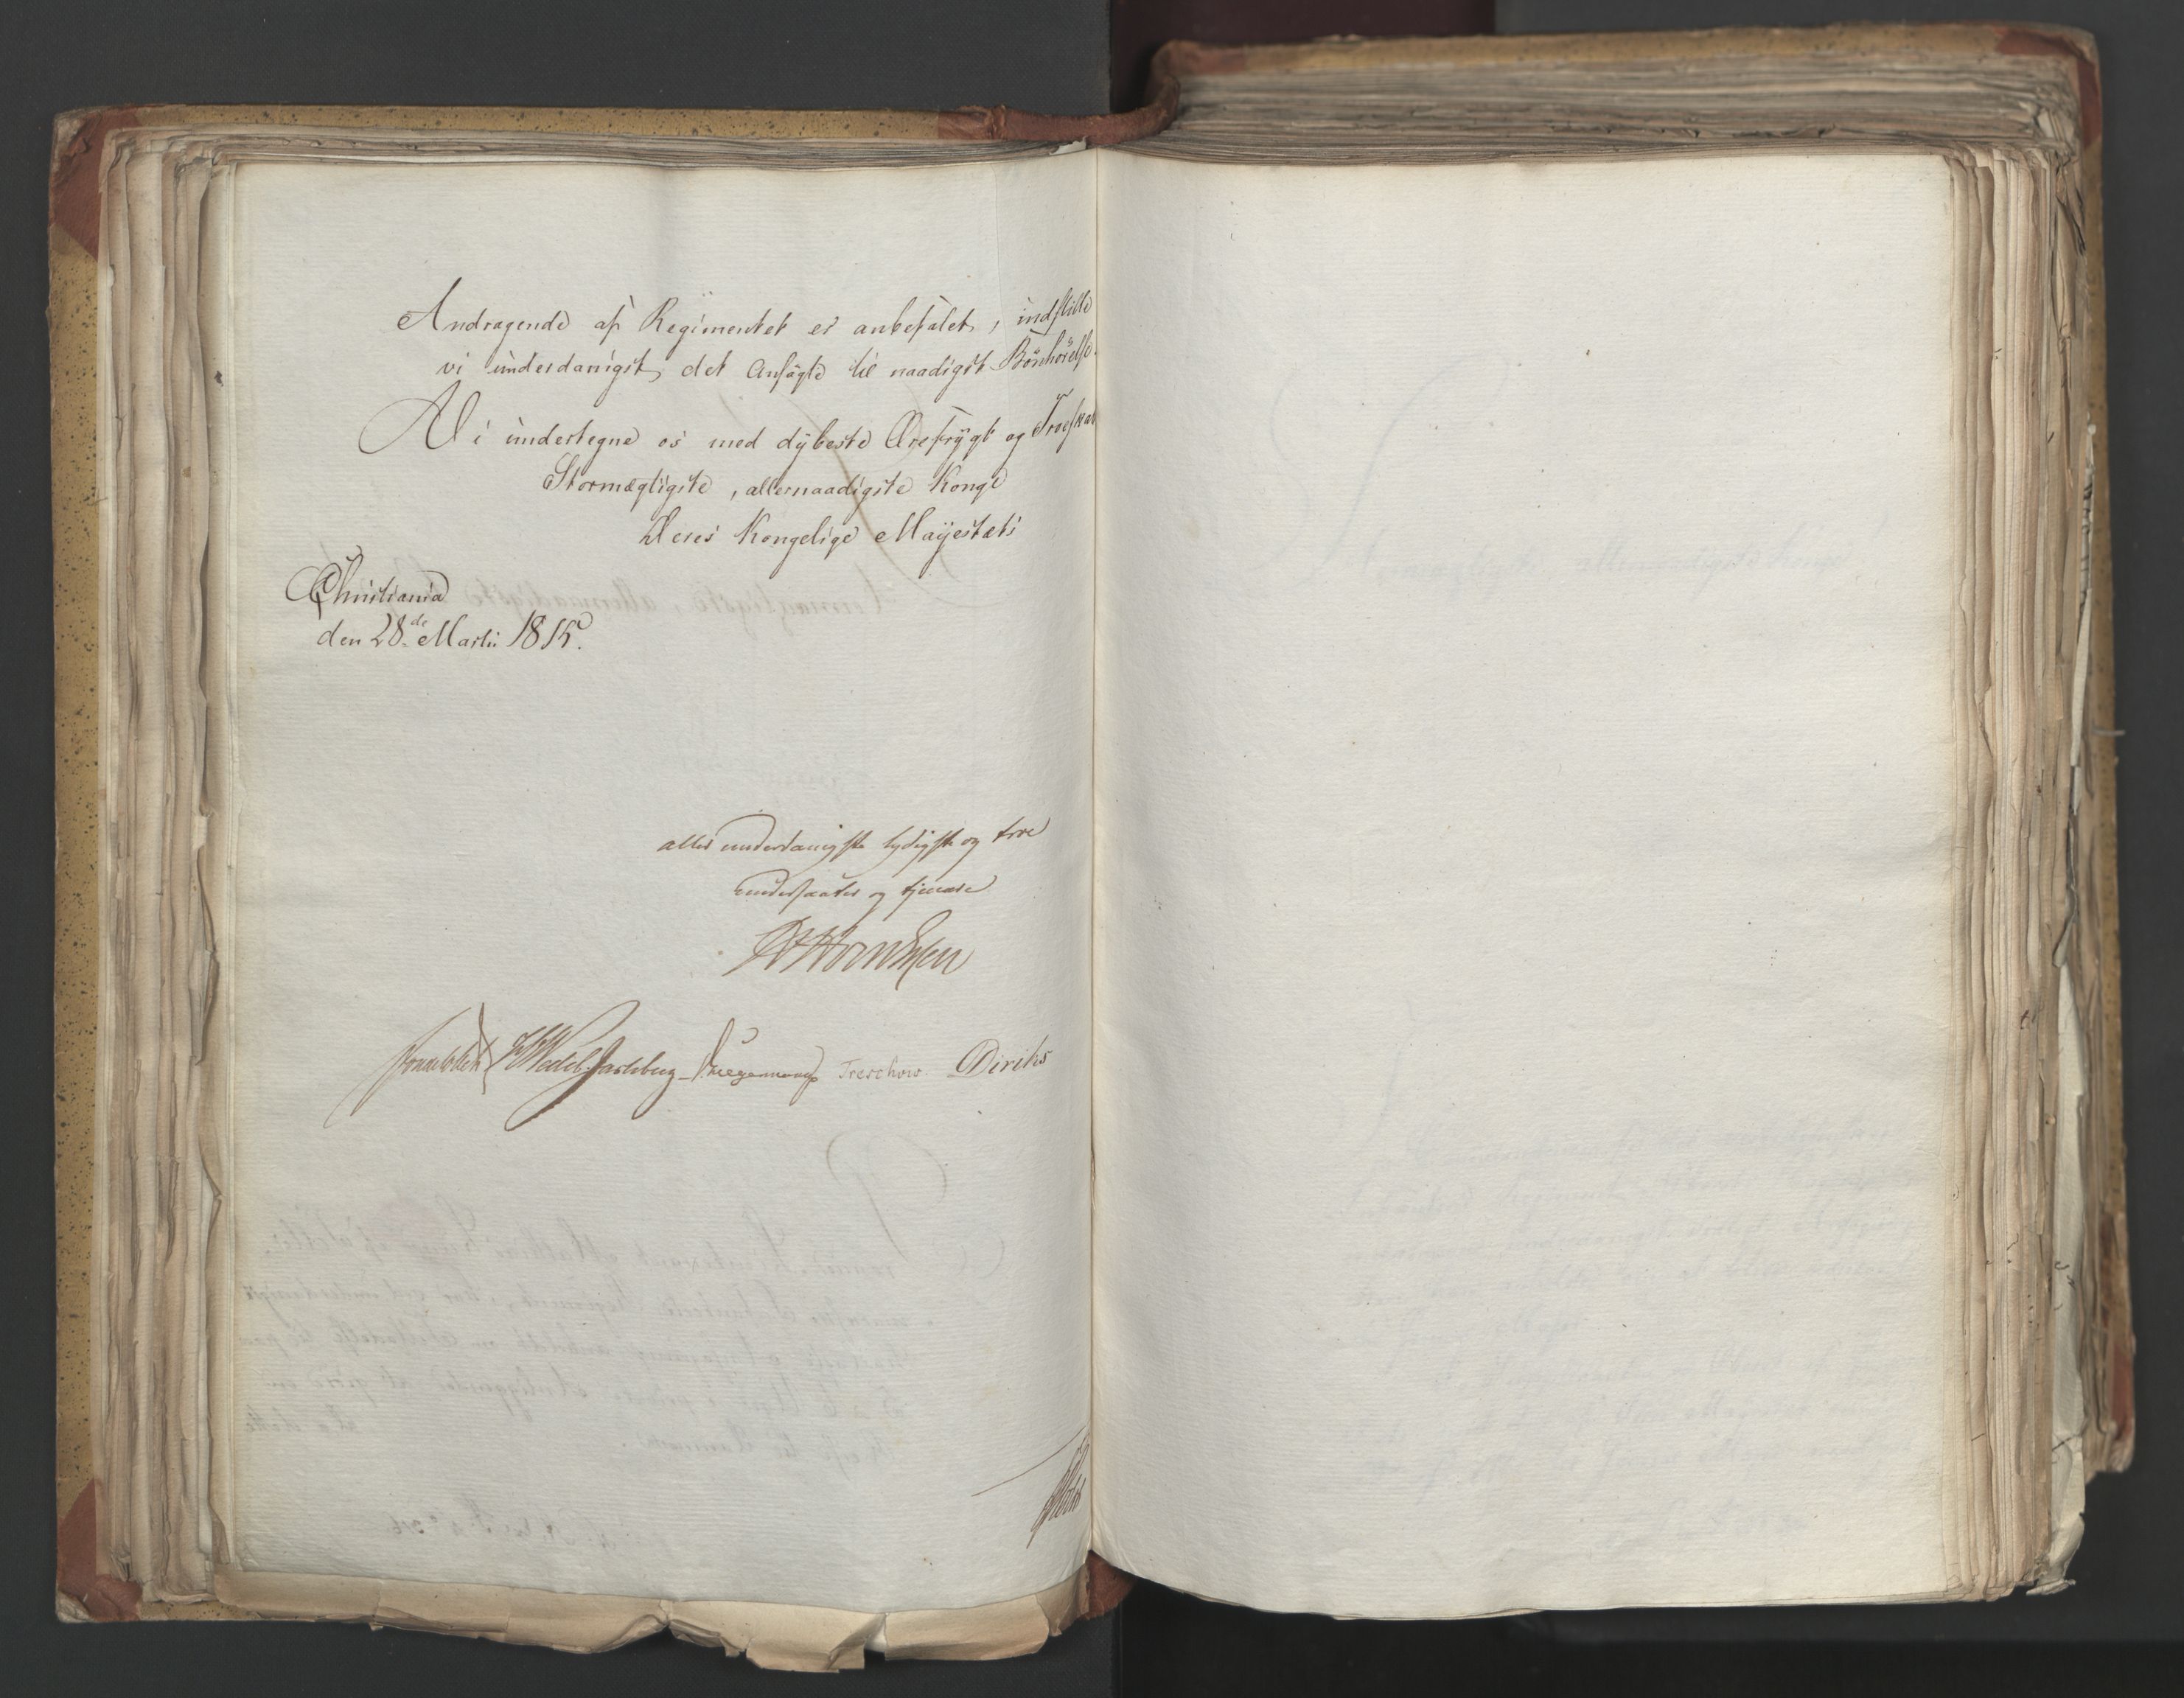 Andragende af Regimentet er anbefalet, indstille
vi underdanigst det Ansøgte til naadigst Bönhörelse.
Vi undertegne os med dybeste Ærefrygt og Troeskab
Stormægtigste, allernaadigste Konge
Deres Kongelige Mayestæts
Christiania
den 28de Martii 1815.
allerunderdanigste lydigste og troe
undersaatter og tjenere
Sommerhielm HWedel Jarlsberg Krieger Treschow Diriks